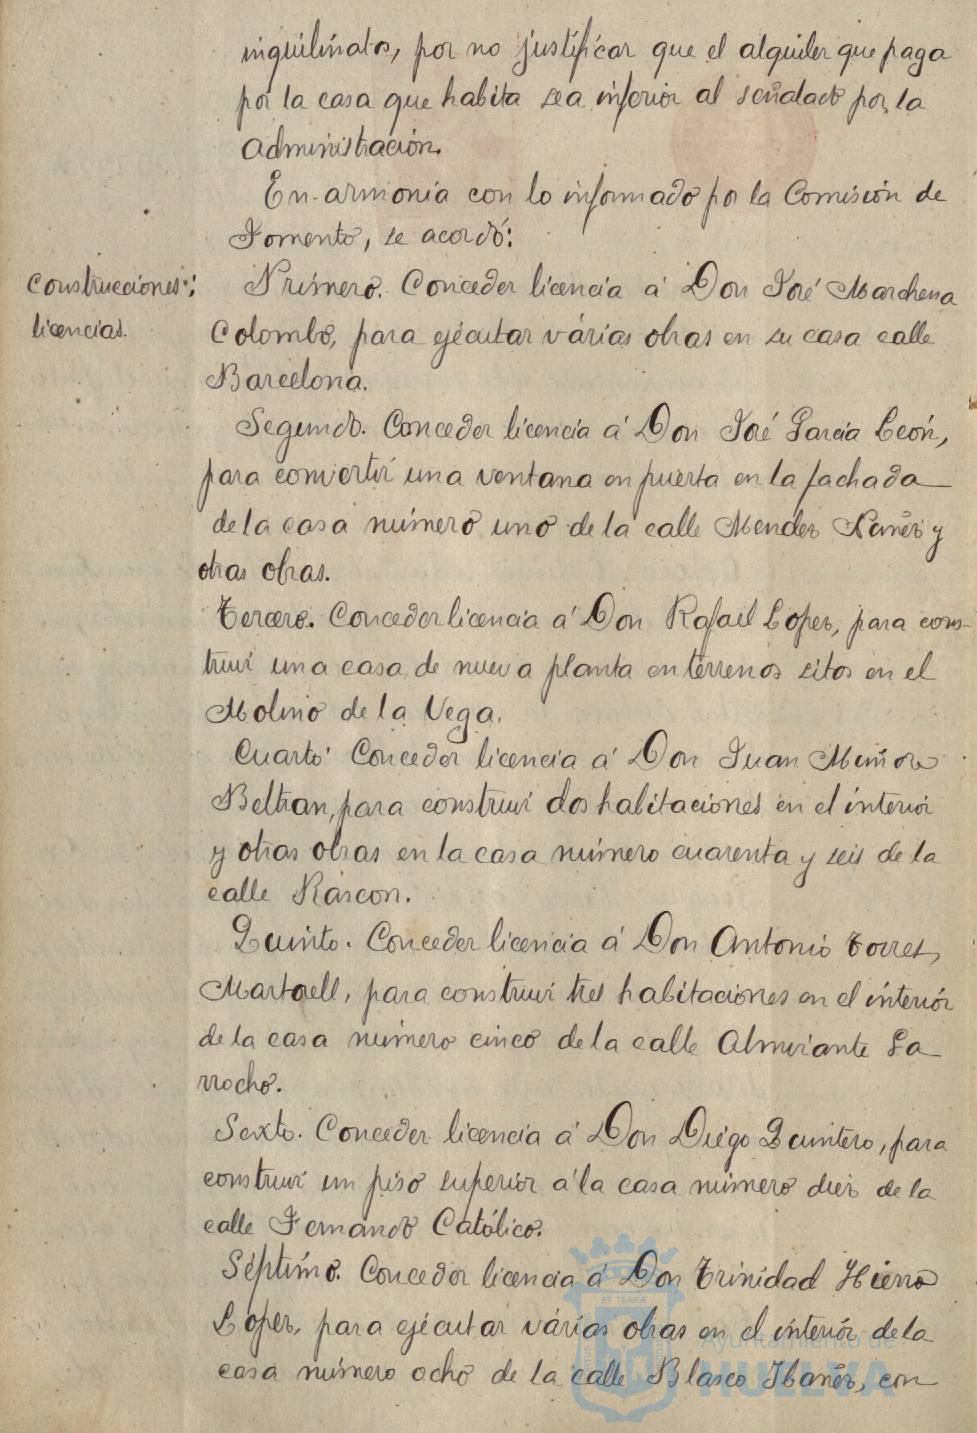 inquilinatos, por no justificar que el alquiler que paga
por la casa que habita sea inferior al señalado por la
Administración.
En armonia con lo informado por la Comisión de
Fomento, se acordó:
Construcciones:
licencias.
Primero. Conceder licencia á Don José Marchena
Colombo, para ejecutar várias obras en su casa calle
Barcelona.
Segundo. Conceder licencia á Don José Garcia León,
para convertir una ventana en puerta en la fachada
de la casa número uno de la calle Mendez Nuñez y
otras obras.
Tercero. Conceder licencia á Don Rafael Lopez, para cons-
truir una casa de nueva planta en terrenos sitos en el
Molino de la Vega.
Cuarto. Conceder licencia á Don Juan Miñore
Beltran, para construir dos habitaciones en el interior
y otras obras en la casa número cuarenta y seis de la
calle Ráscon.
Quinto. Conceder licencia á Don Antonio Torres,
Martorell, para construir tres habitaciones en el interiór
de la casa número cinco de la calle Almirante Ga
rrocho.
Sexto. Conceder licencia á Don Diégo Quintero, para
construir un piso superior á la casa número diez de la
calle Fernando Católico.
Séptimo. Conceder licencia á Don Trinidad Hierro
Lopez, para ejécutar várias obras en el interiór de la
casa número ocho de la calle Blasco Ibañez, con
Ayuntamiento de
HUELVA